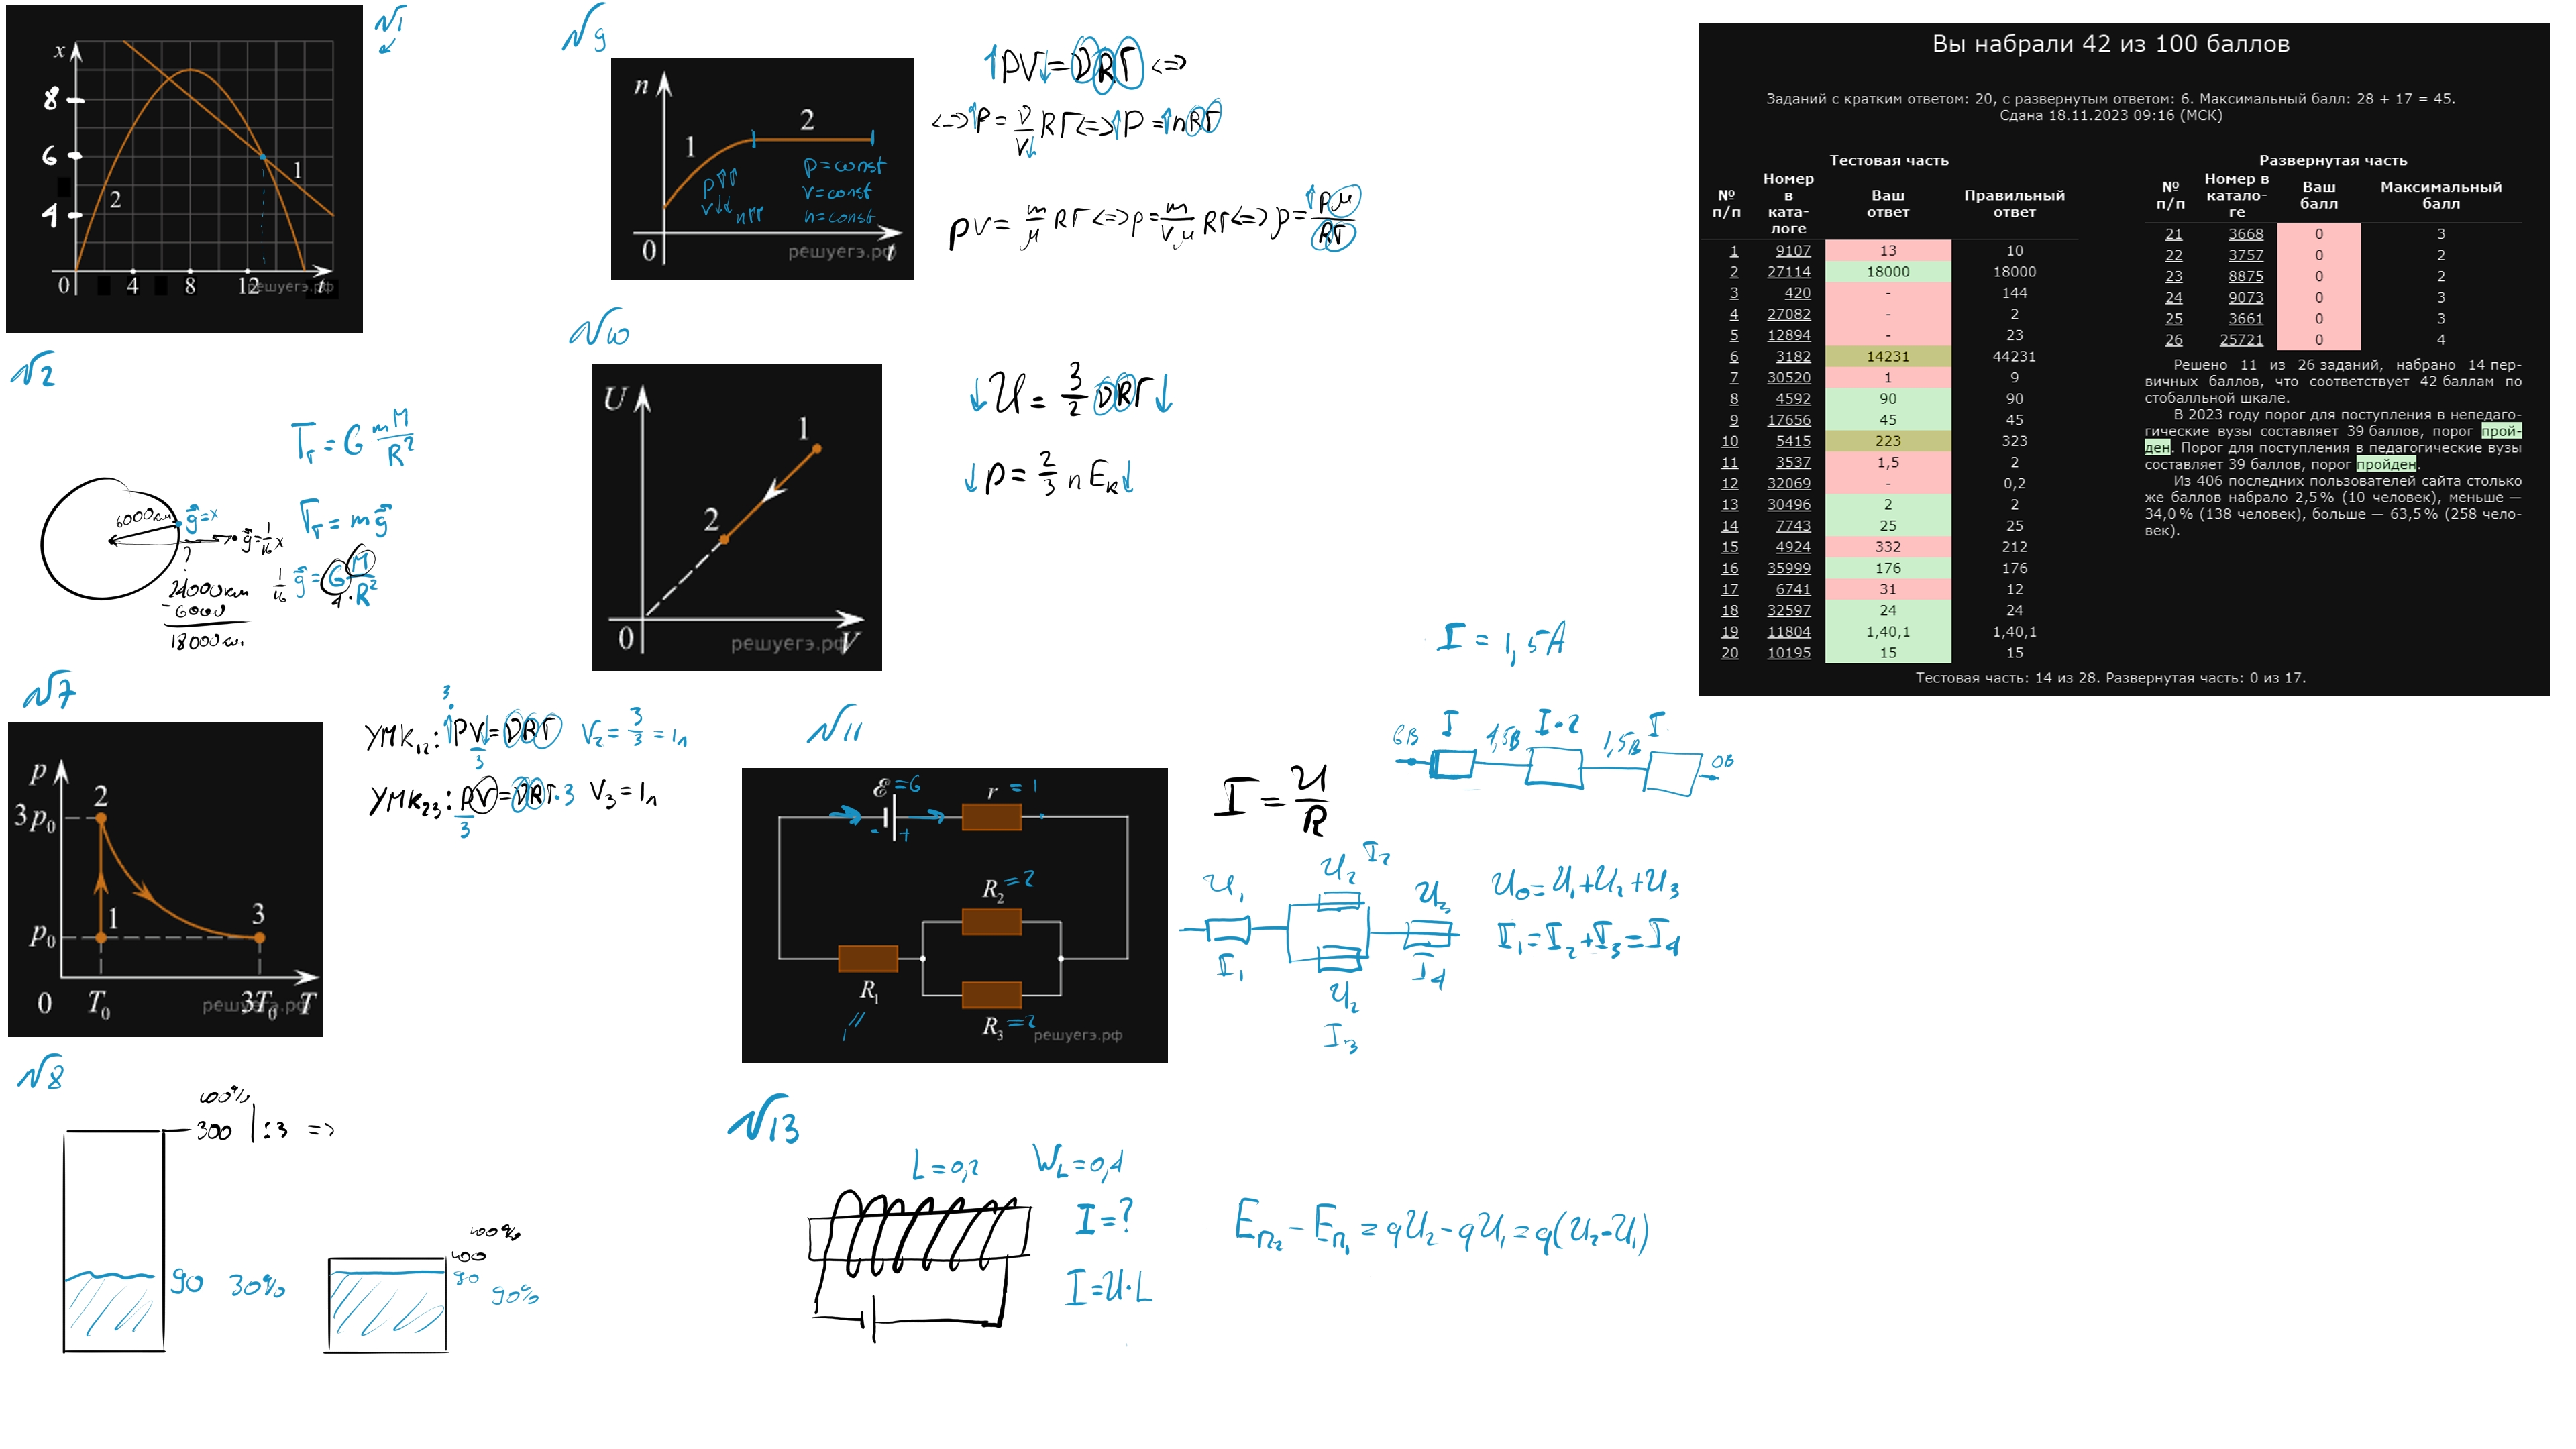 №1
x
8
6
4
0
4
8
12
t
1
2
решуегэ.рф
№2
Tт = G mM/R²
Tт = mg⃗
1/16 g⃗ = G M/4·R²
6000км
g⃗=x
g⃗=1/16 x
?
24000км
-6000
18000км
№7
p
2
3p₀
1
3
p₀
0
T₀
3T₀
T
решуегэ.рф
УМК₁₂: ↑PV↓=νRT V₂ = 3/3 = 1л
3
3
УМК₂₃: pV=νRT·3 V₃ = 1л
3
№8
100%
300 | :3 =>
90 30%
100%
100
90
90%
№9
n
2
1
p↑↑
V↓↓ n↑↑
p = const
v = const
n = const
0
t
решуегэ.рф
↑PV↓=νRT <=>
<=>↑P = ν/V↓ RT <=> ↑P = ↑nRT
pV = m/μ RT <=> p = m/Vμ RT <=> ρ = ↑pμ/RT
№10
U
1
2
0
V
решуегэ.рф
↓U = 3/2 νRT↓
↓p = 2/3 n Eк↓
№11
ℰ =6
r = 1
- +
R₂ =2
R₁
1
R₃ =2
решуегэ.рф
I = 1,5A
6В I 4,5В I·2 1,5В I 0В
I = U/R
U₁ U₂ I₂ U₃
I₁ U₂ I₄
I₃
U₀=U₁+U₂+U₃
I₁=I₂+I₃=I₄
№13
L=0,2 W_L=0,4
I=?
I=U·L
Eп₂ - Eп₁ = qU₂ - qU₁ = q(U₂-U₁)
Вы набрали 42 из 100 баллов
Заданий с кратким ответом: 20, с развернутым ответом: 6. Максимальный балл: 28 + 17 = 45.
Сдана 18.11.2023 09:16 (МСК)
Тестовая часть
№ п/п Номер в ката-логе Ваш ответ Правильный ответ
1 9107 13 10
2 27114 18000 18000
3 420 - 144
4 27082 - 2
5 12894 - 23
6 3182 14231 44231
7 30520 1 9
8 4592 90 90
9 17656 45 45
10 5415 223 323
11 3537 1,5 2
12 32069 - 0,2
13 30496 2 2
14 7743 25 25
15 4924 332 212
16 35999 176 176
17 6741 31 12
18 32597 24 24
19 11804 1,40,1 1,40,1
20 10195 15 15
Развернутая часть
№ п/п Номер в катало-ге Ваш балл Максимальный балл
21 3668 0 3
22 3757 0 2
23 8875 0 2
24 9073 0 3
25 3661 0 3
26 25721 0 4
Решено 11 из 26 заданий, набрано 14 пер-
вичных баллов, что соответствует 42 баллам по
стобалльной шкале.
В 2023 году порог для поступления в непедаго-
гические вузы составляет 39 баллов, порог прой-
ден. Порог для поступления в педагогические вузы
составляет 39 баллов, порог пройден.
Из 406 последних пользователей сайта столько
же баллов набрало 2,5 % (10 человек), меньше —
34,0 % (138 человек), больше — 63,5 % (258 чело-
век).
Тестовая часть: 14 из 28. Развернутая часть: 0 из 17.